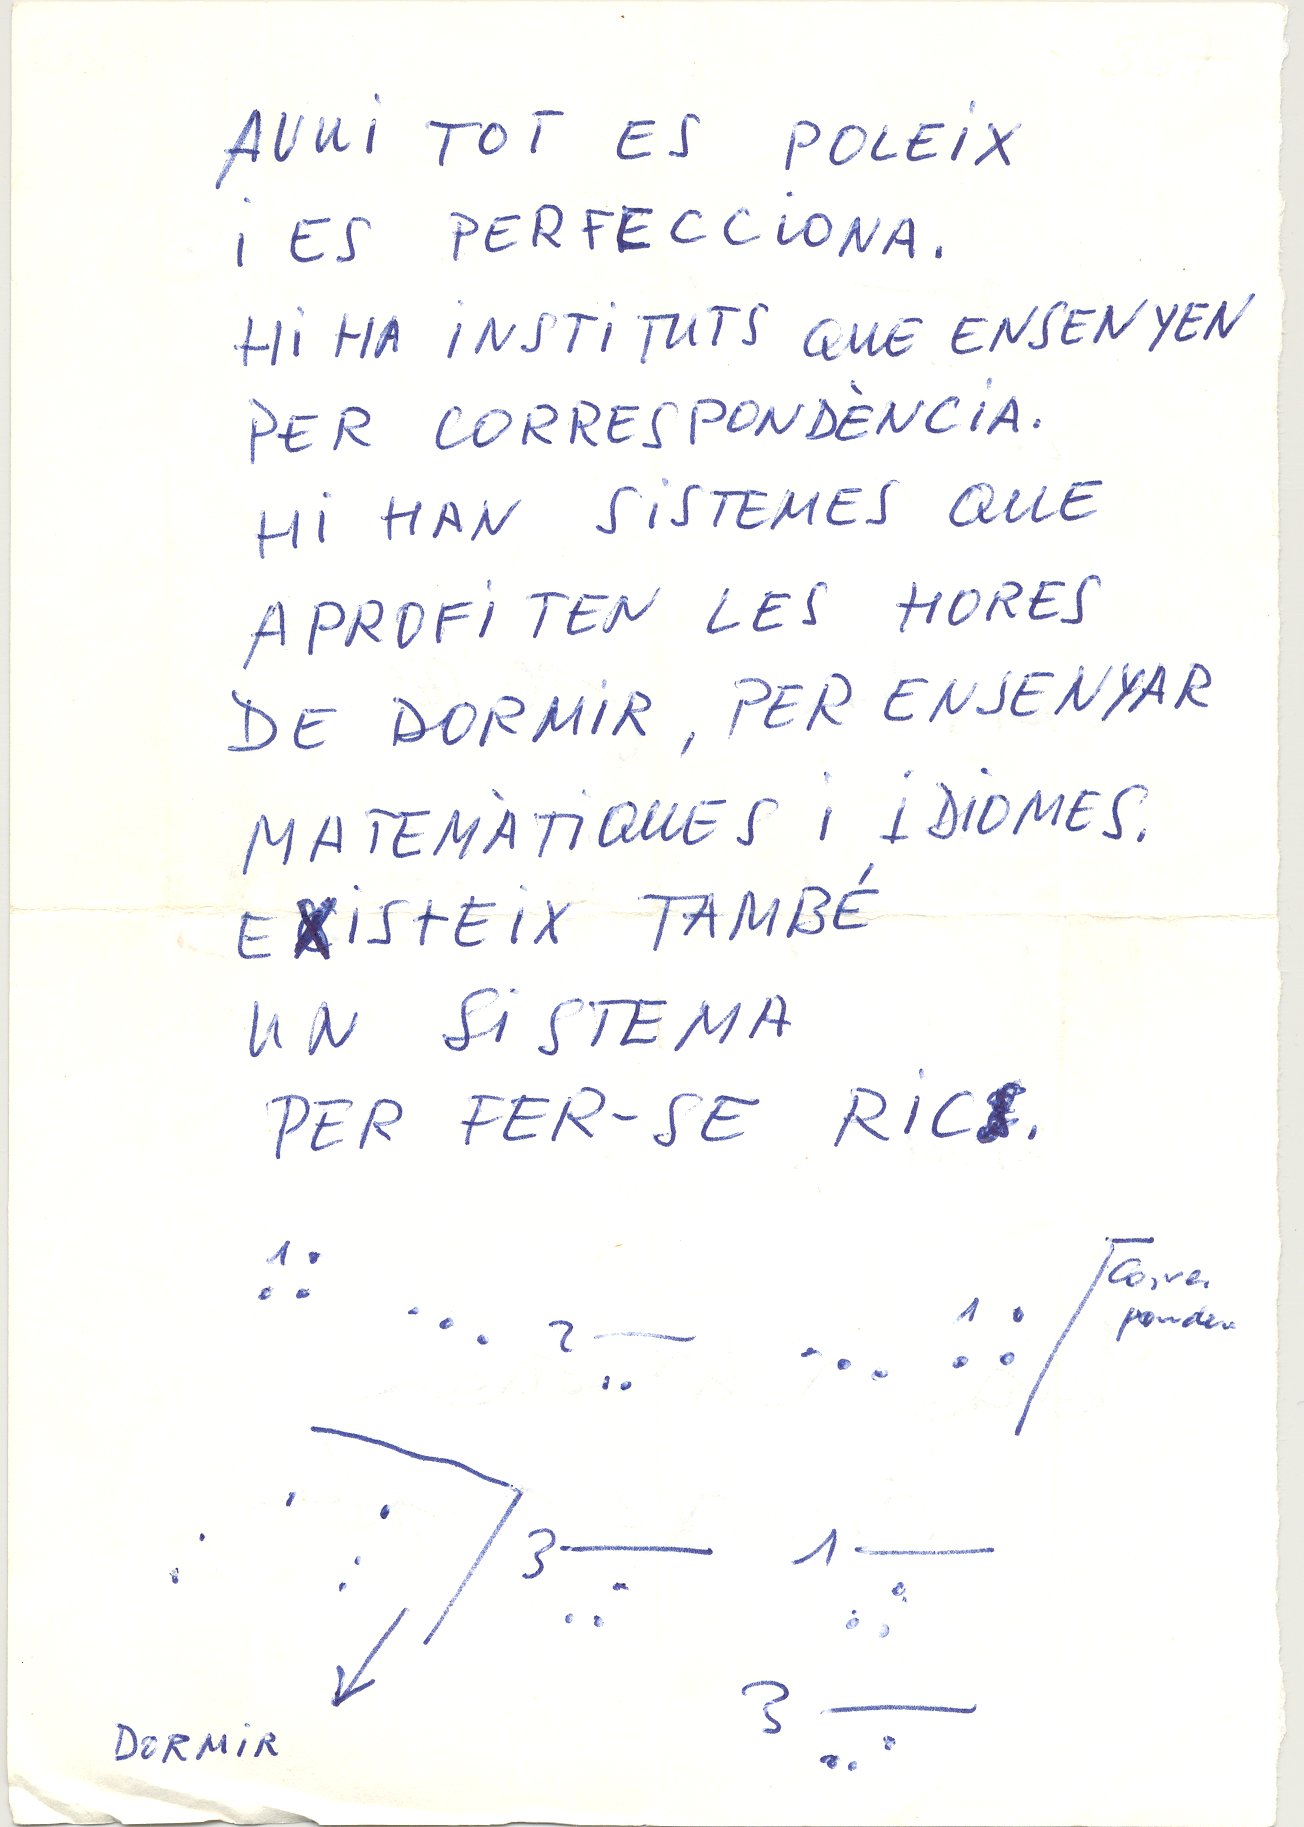 AVUI TOT ES POLEIX
i ES PERFECCIONA.
HI HA INSTITUTS QUE ENSENYEN
PER CORRESPONDÈNCIA.
HI HAN SISTEMES QUE
APROFITEN LES HORES
DE DORMIR, PER ENSENYAR
MATEMÀTIQUES I IDIOMES.
EXISTEIX TAMBÉ
UN SISTEMA
PER FER-SE RICS.
1
2
1
3
1
3
DORMIR